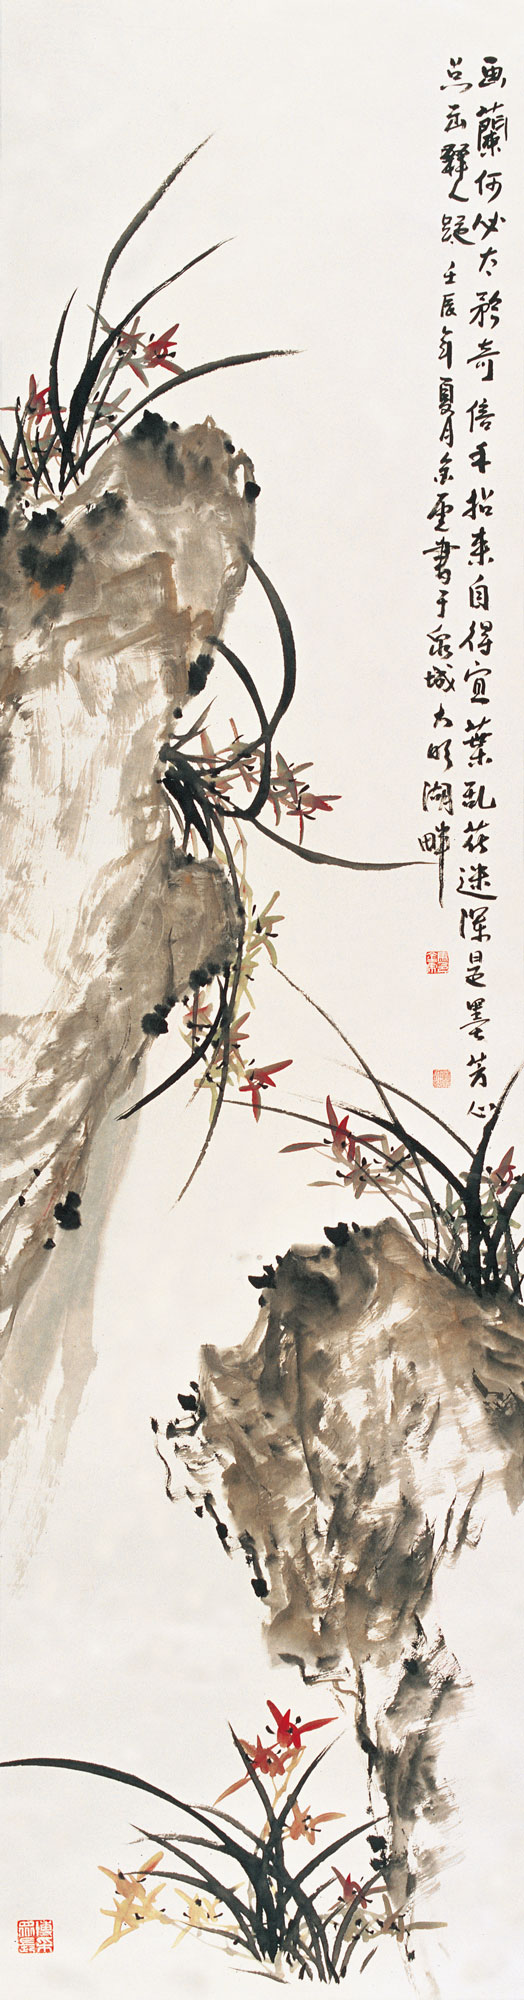 画蘭何必太矜奇信手拈来自得宜葉乱花迷深是墨芳心
点出释人疑壬辰年夏月金
書于泉城大明湖畔